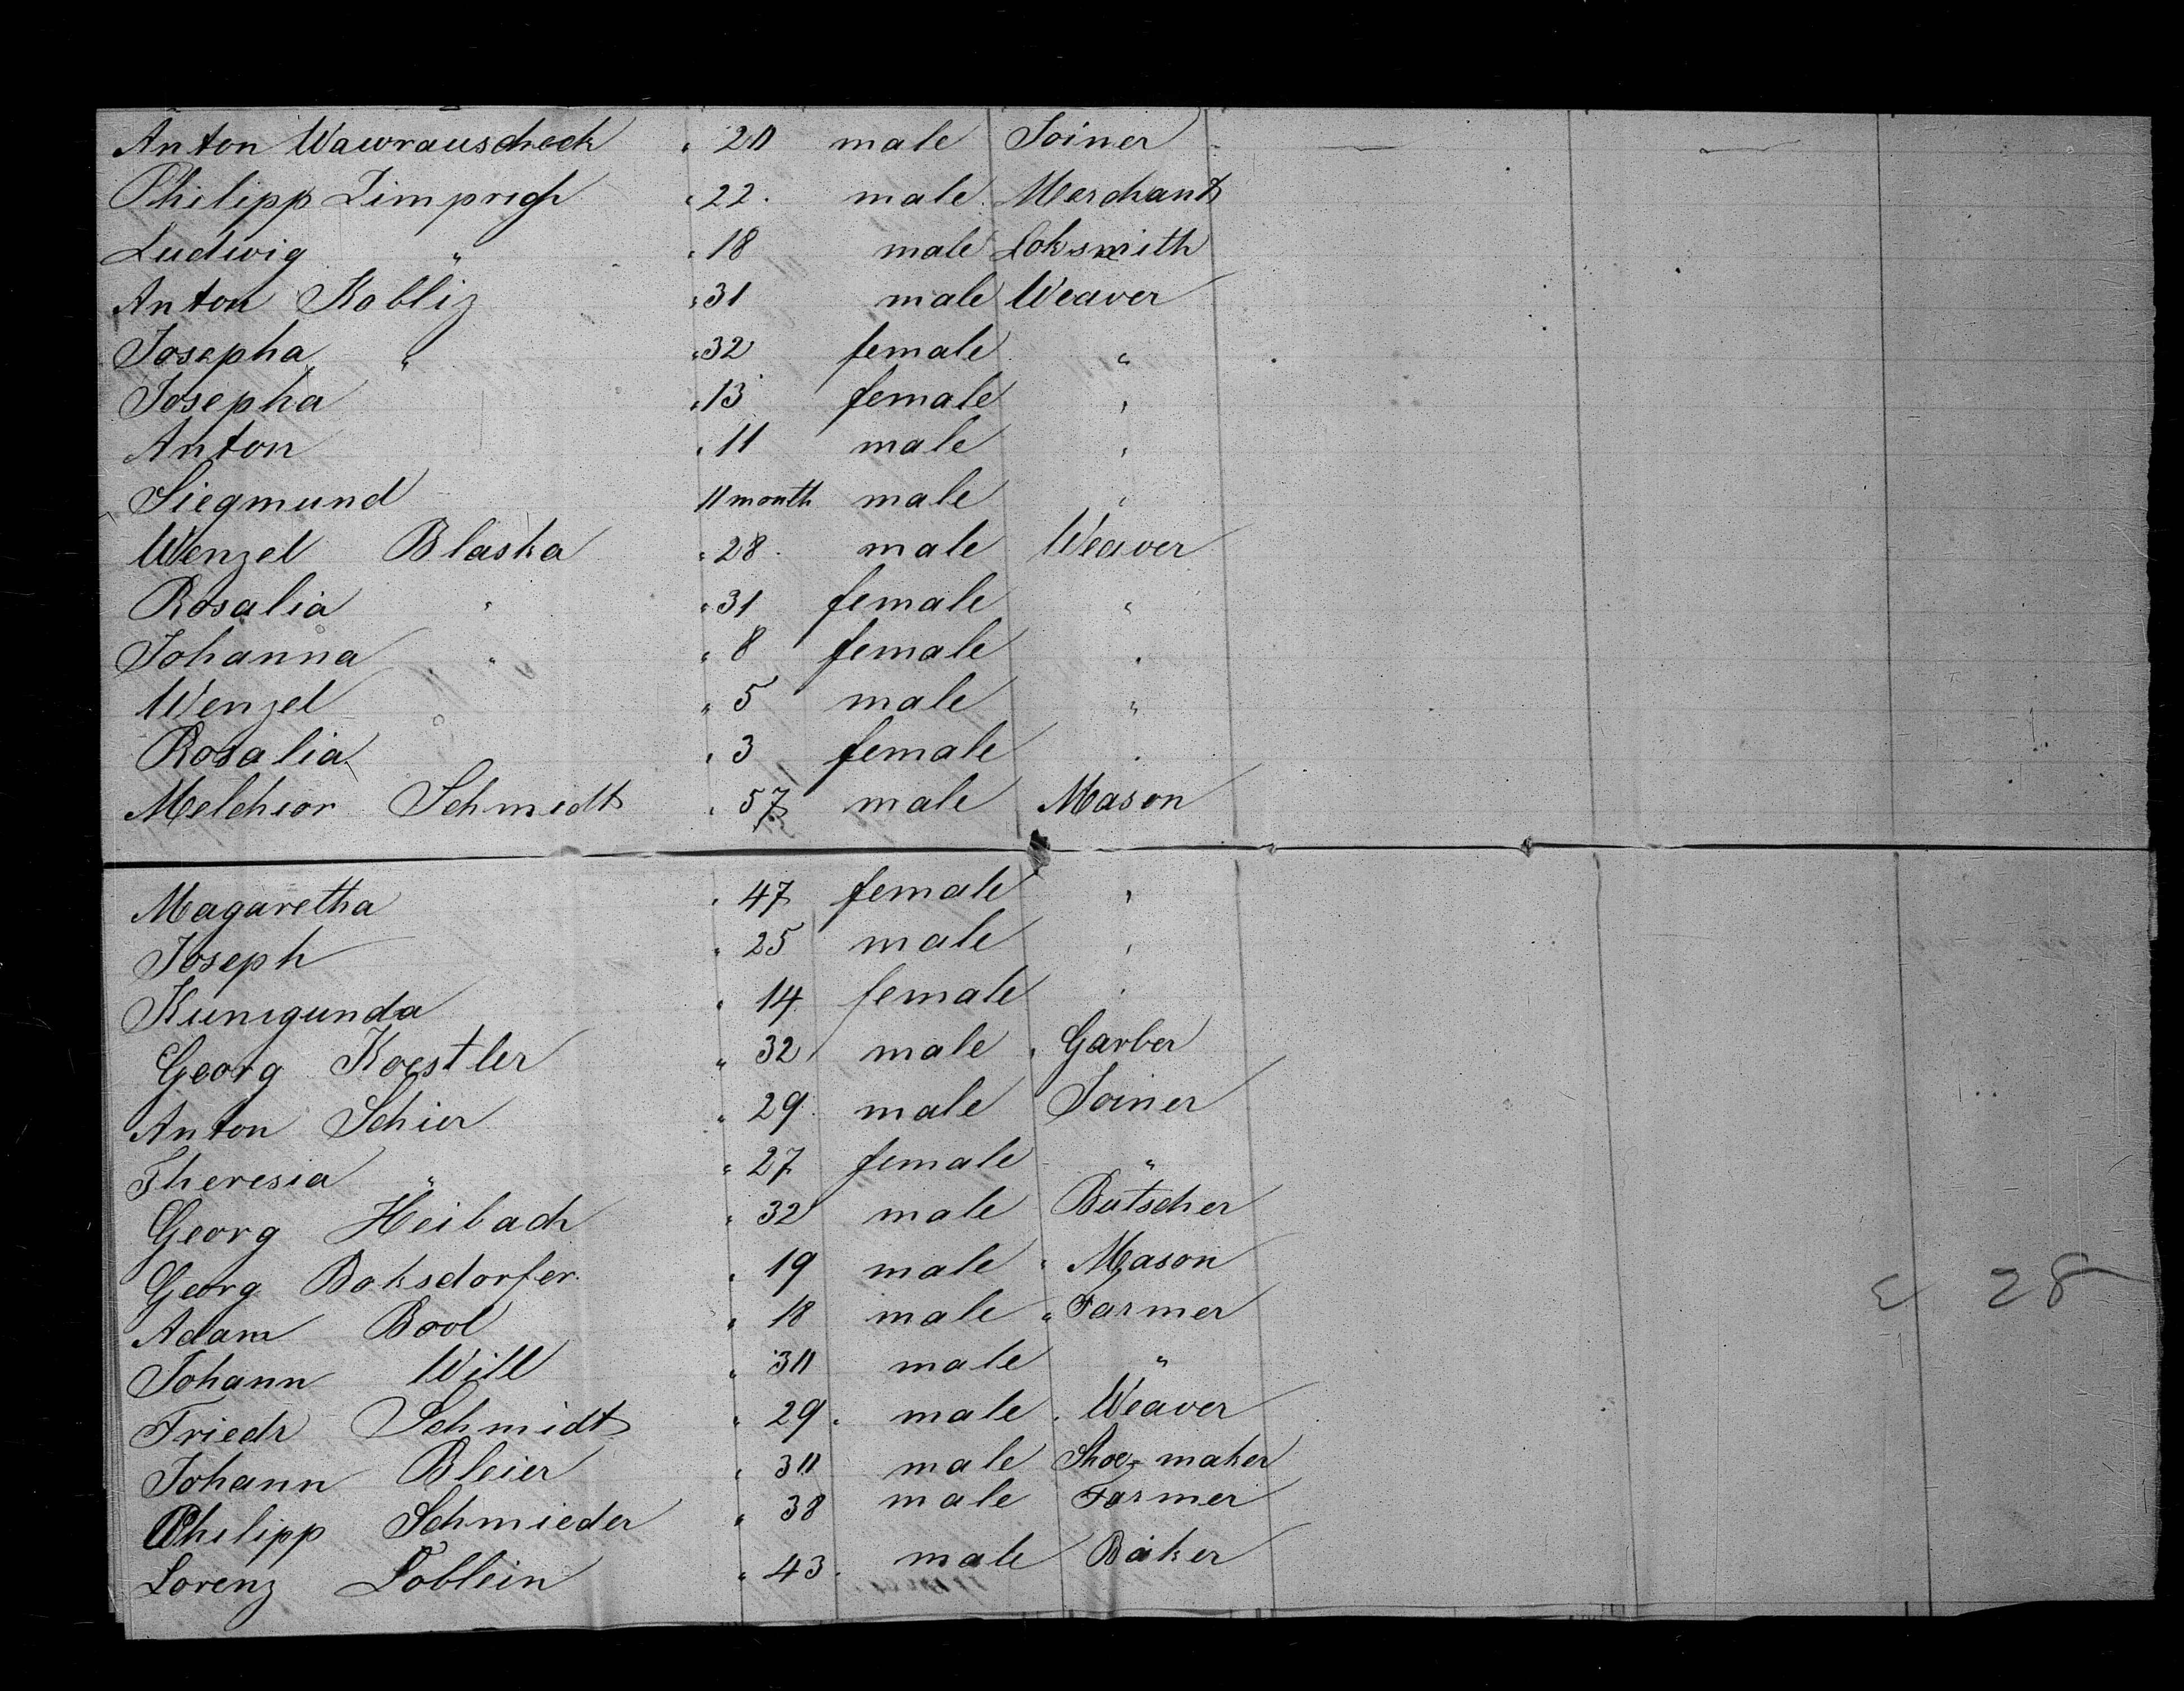 Anton Wawrauscheck " 20 male Joiner
Philipp Limprich " 22. male Merchant
Ludwig " " 18 male Loksmith
Anton Kobliz " 31 male Weaver
Josepha " " 32 female "
Josepha " 13 female "
Anton " 11 male "
Siegmund 11 month male "
Wenzel Blaska " 28. male Weaver
Rosalia " " 31 female "
Johanna " " 8 female "
Wenzel " 5 male "
Rosalia " 3 female "
Melchior Schmidt " 57 male Mason
Magaretha " 47 female "
Joseph " 25 male "
Kunigunda " 14 female "
Georg Koestler " 32 male " Garber
Anton Schier " 29. male Joiner
Theresia " " 27 female "
Georg Heibach " 32 male Butscher
Georg Boksdorfer. " 19 male " Mason
Adam Bool " 18 male " Farmer
Johann Will " 30 male "
Friedr Schmidt " 29. male. Weaver
Johann Bleier " 30 male Shoe-maker
Philipp Schmieder " 38 male Farmer
Lorenz Loblein " 43. male Baker
28